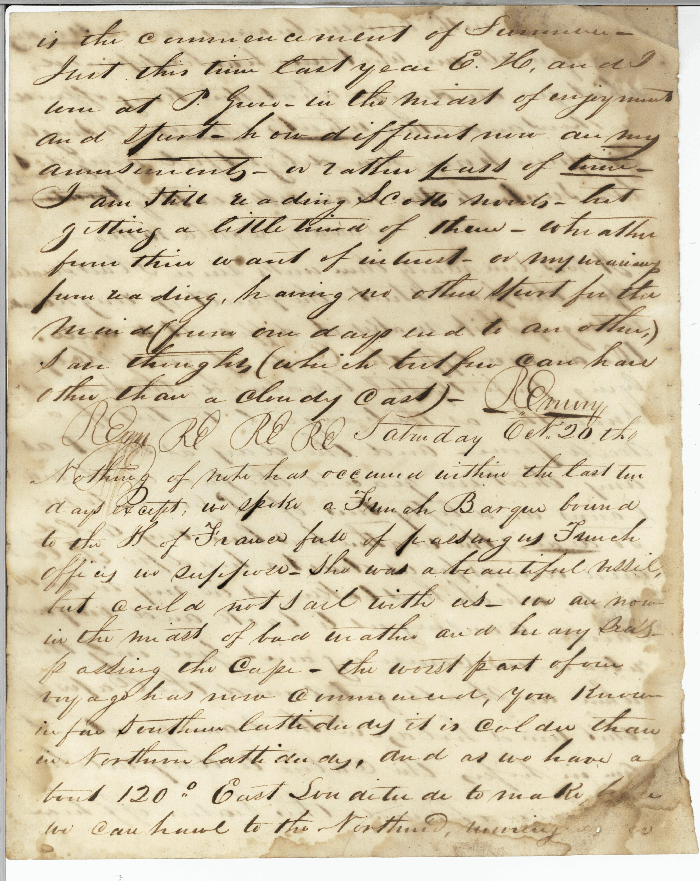 is the commencement of Summer –
Just this time last year E. H. and I
were at P. Grove – in the midst of enjoyment
and sport – how different now are my
amusements – or rather pass of time –
I am still reading Scotts novels – but
getting a little tired of them – whether
from their want of interest – or my
from reading, having no other sport for the
Mind (from one days end to an other,)
I am thoughts, (which but few can have
other than a cloudy cast) – REmery
REmy RE RE RE Saturday Oct. 26 the
Nothing of note has occured within the last ten
days except, we spoke a French Barque bound
to the H of France full of passengers French
offices we suppose – She was a beautiful vessil,
but could not sail with us – we are now
in the midst of bad weather and heavy Seas
passing the Cape – the worst part of our
voyage has now commenced, you Know
in far Southern lattidudes it is colder than
in Northern lattidudes, and as we have a
bout 120° East Londitude to make
we can hawl to the Northerd,